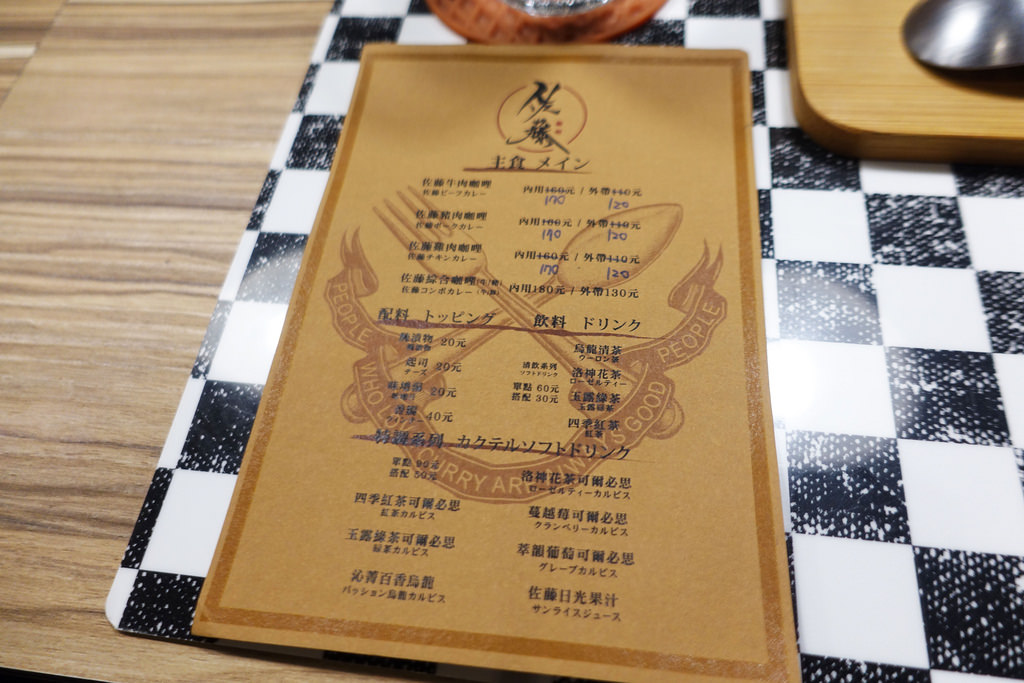 佐藤
主食 メイン
佐藤牛肉咖哩 內用160元 / 外帶110元
佐藤ビーフカレー 170 120
佐藤豬肉咖哩 內用160元 / 外帶110元
佐藤ポークカレー 170 120
佐藤雞肉咖哩 內用160元 / 外帶110元
佐藤チキンカレー 170 120
佐藤綜合咖哩(牛/豬) 內用180元 / 外帶130元
佐藤コンボカレー(牛/豚)
配料 トッピング
漬物 20元
起司 20元
チーズ
20元
40元
飲料 ドリンク
清飲系列
ソフトドリンク
單點 60元
搭配 30元
烏龍清茶
ウーロン茶
洛神花茶
ローゼルティー
玉露綠茶
玉露緑茶
四季紅茶
紅茶
特調系列 カクテルソフトドリンク
單點 90元
搭配 50元
四季紅茶可爾必思
紅茶カルピス
玉露綠茶可爾必思
緑茶カルピス
沁菁百香烏龍
パッション烏龍カルピス
洛神花茶可爾必思
ローゼルティーカルピス
蔓越莓可爾必思
クランベリーカルピス
萃韻葡萄可爾必思
グレープカルピス
佐藤日光果汁
サンライズジュース
PEOPLE WHO CURRY ARE ALWAYS GOOD PEOPLE